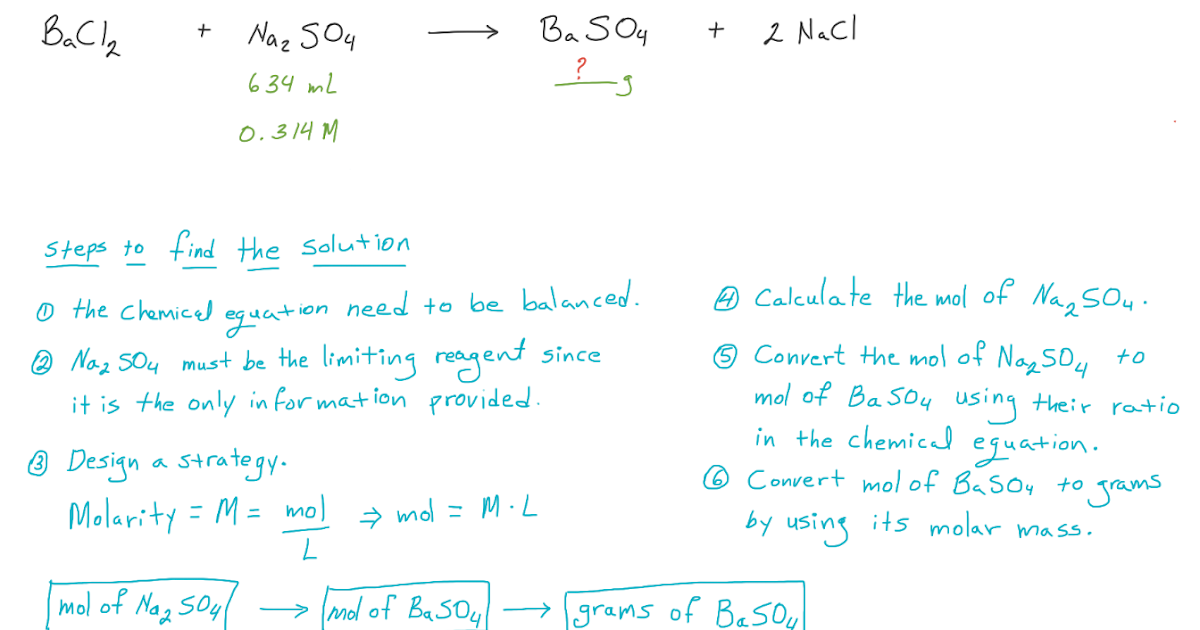 BaCl₂ + Na₂SO₄ → BaSO₄ + 2 NaCl
634 mL
? g
0.314 M
steps to find the solution
① the chemical equation need to be balanced.
② Na₂SO₄ must be the limiting reagent since
it is the only information provided.
③ Design a strategy.
Molarity = M = mol/L ⇒ mol = M·L
④ Calculate the mol of Na₂SO₄.
⑤ Convert the mol of Na₂SO₄ to
mol of BaSO₄ using their ratio
in the chemical equation.
⑥ Convert mol of BaSO₄ to grams
by using its molar mass.
mol of Na₂SO₄ → mol of BaSO₄ → grams of BaSO₄